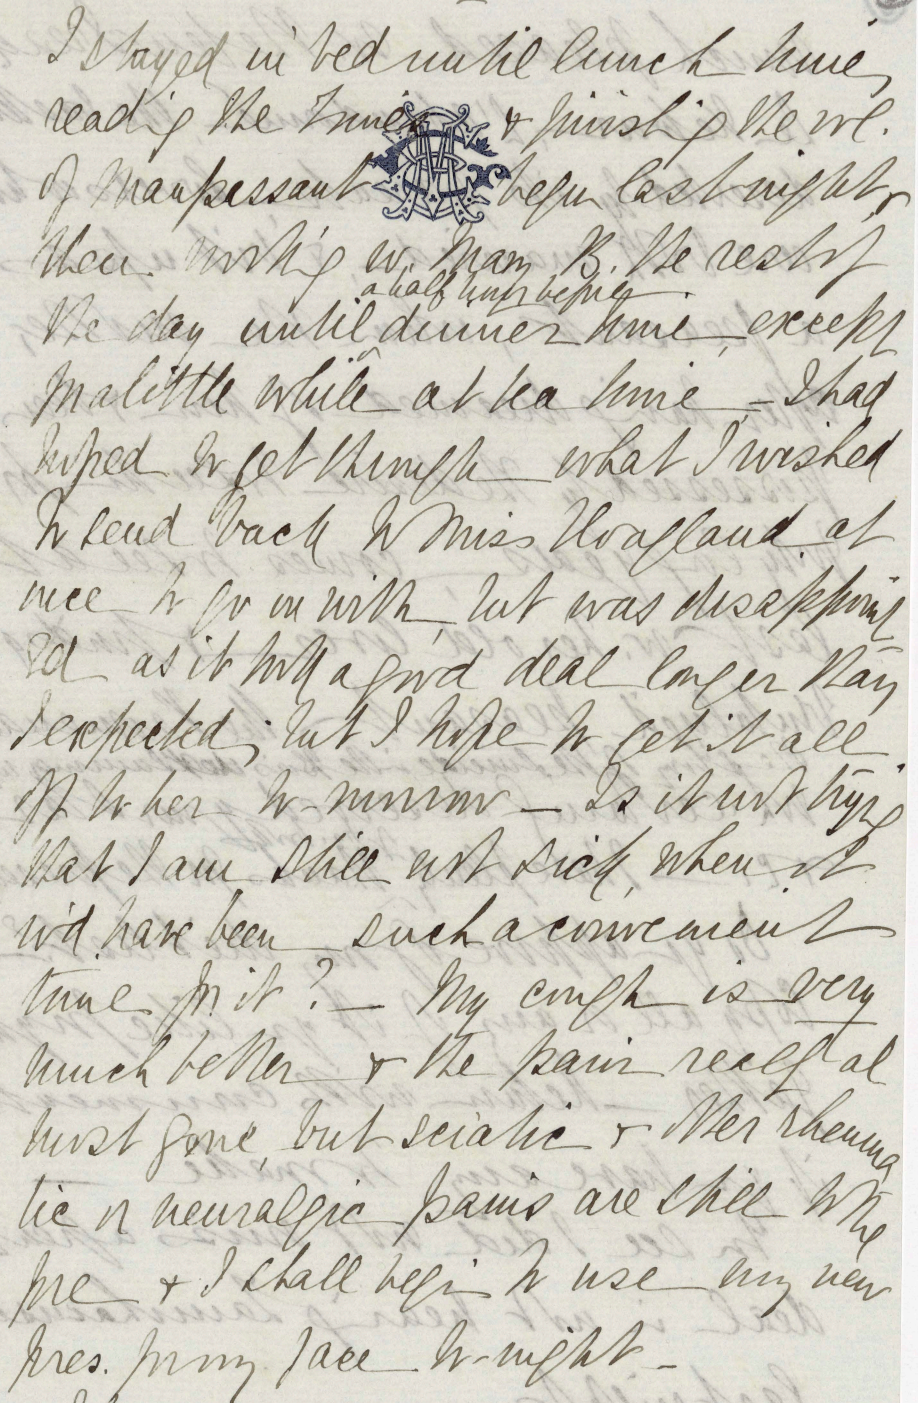 I stayed in bed until lunch time,
reading the Times & finishing the vol.
of Maupassant begun last night, &
then working w. Mary B. the rest of
a half hour before
the day until dinner time, except
for a little while at tea time – I had
hoped to get through what I wished
to send back to Miss Hoagland at
once to go on with, but was disappoint
ed as it took a good deal longer than
I expected; but I hope to get it all
off to her to-morrow – Is it not trying
that I am still not sick, when it
w'd have been such a convenient
time for it? – My cough is very
much better & the pain really al
most gone, but sciatic & other rheuma
tic or neuralgic pains are still to the
fore & I shall begin to use my new
pres. for my face to-night –